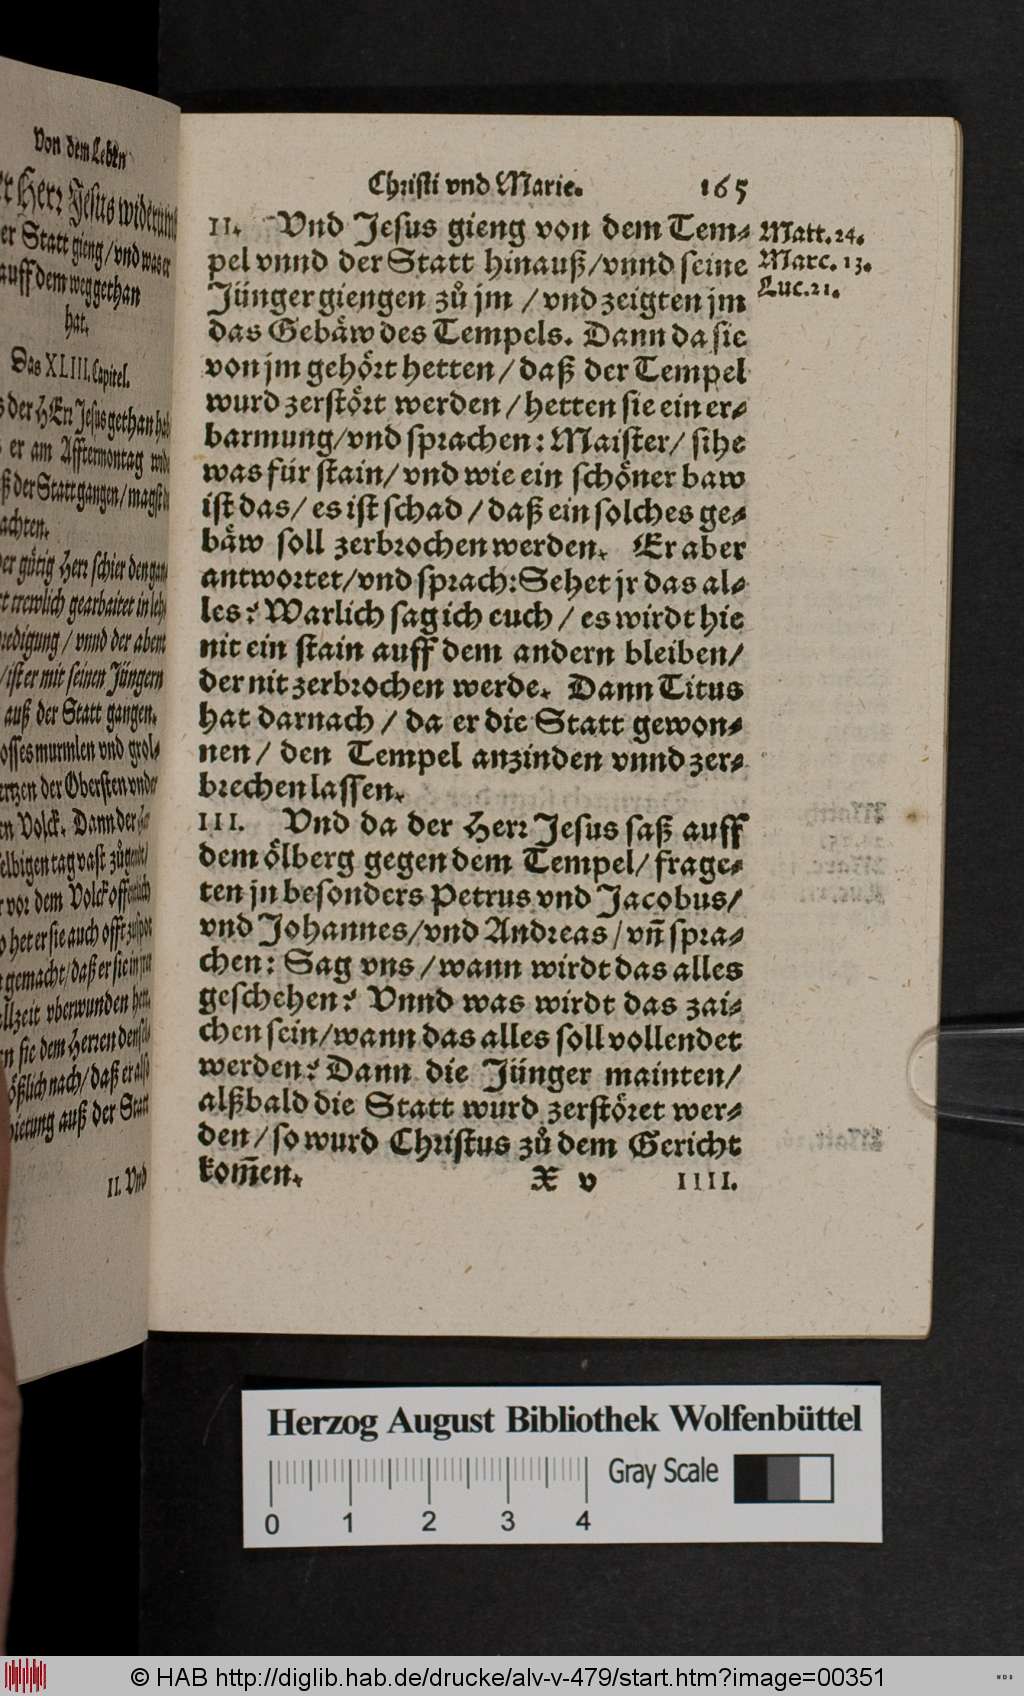 Von dem Leben
Herr Jesus widerumb
er Statt gieng / vnd was er
auff dem weg gethan
hat.
Das XLIII. Capitel.
der HErr Jesus gethan hab
er am Afftermontag
der Statt gangen / magst du
achten.
der gütig Herr schier den
trewlich gearbaitet in
predigung / vnnd der abent
/ ist er mit seinen Jüngern
auß der Statt gangen.
grosses murmlen vnd grol-
hertzen der Obersten vnder
Volck. Dann der
selbigen tag vast
vor dem Volck offentlich
het er sie auch offt
gemacht / daß er sie in
allzeit vberwunden hett.
sie dem Herren
nach / daß er also
auß der Statt
II. Vnd
Christi vnd Marie. 165
II. Vnd Jesus gieng von dem Tem-
pel vnnd der Statt hinauß / vnnd seine
Jünger giengen zů jm / vnd zeigten jm
das Gebäw des Tempels. Dann da sie
von jm gehört hetten / daß der Tempel
wurd zerstört werden / hetten sie ein er-
barmung / vnd sprachen: Maister / sihe
was für stain / vnd wie ein schöner baw
ist das / es ist schad / daß ein solches ge-
bäw soll zerbrochen werden. Er aber
antwortet / vnd sprach: Sehet jr das al-
les? Warlich sag ich euch / es wirdt hie
nit ein stain auff dem andern bleiben /
der nit zerbrochen werde. Dann Titus
hat darnach / da er die Statt gewon-
nen / den Tempel anzinden vnnd zer-
brechen lassen.
III. Vnd da der Herr Jesus saß auff
dem ölberg gegen dem Tempel / frage-
ten jn besonders Petrus vnd Jacobus /
vnd Johannes / vnd Andreas / vñ spra-
chen: Sag vns / wann wirdt das alles
geschehen? Vnnd was wirdt das zai-
chen sein / wann das alles soll vollendet
werden? Dann die Jünger mainten /
alßbald die Statt wurd zerstöret wer-
den / so wurd Christus zů dem Gericht
kom̄en.
X v IIII.
Matt. 24.
Marc. 13.
Luc. 21.
Herzog August Bibliothek Wolfenbüttel
Gray Scale
0 1 2 3 4
© HAB http://diglib.hab.de/drucke/alv-v-479/start.htm?image=00351